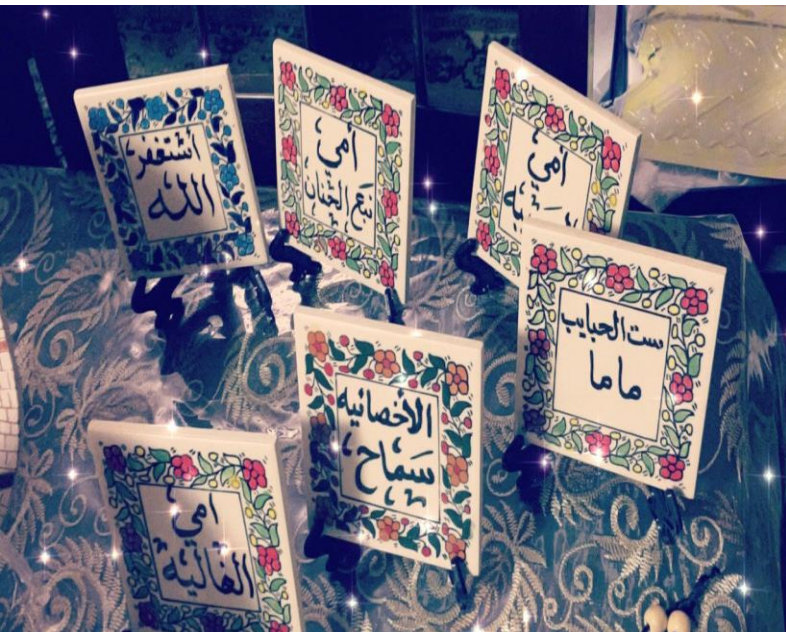 أستغفر
الله
أمي
نبع الحنان
أمي
ست الحبايب
ماما
الأخصائيه
سماح
أمي
الغاليه